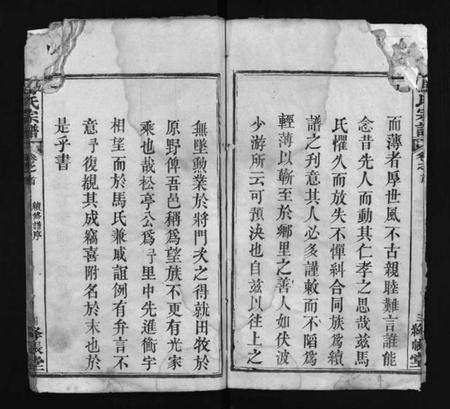 而薄者厚世風不古親睦難言誰能
念昔先人而動其仁孝之思哉茲馬
氏懼久而放失不憚糾合同族為續
譜之刋意其人必多謹敕而不蹈為
輕薄以蘄至於鄉里之善人如伏波
少游所云可預決也自茲以往上之
氏宗譜
無墜勳業於將門次之得就田牧於
原野俾吾邑稱為望族不更有光家
乘也哉松亭公為予里中先進衡宇
相望而於馬氏兼戚誼例有弁言不
意予復覩其成竊喜附名於末也於
是乎書
氏宗譜
卷之首
續修譜序
絳帳堂